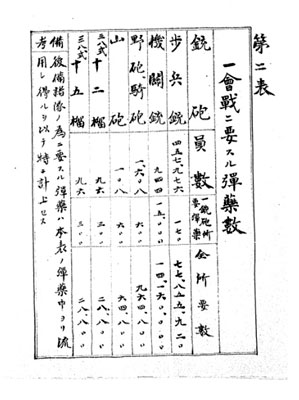 第二表
一會戰ニ要スル彈藥數
銃砲 員數 一銃砲所要彈藥 全所要數
步兵銃 四五七、九七六 一七〇 七七、八五五、九二〇
機關銃 九四四 一五、〇〇〇 一四、一六〇、〇〇〇
野砲、騎砲 一、六〇八 六〇〇 九六四、八〇〇
山砲 一〇八 六〇〇 六四、八〇〇
三八式十二榴 九六 三〇〇 二八、八〇〇
三八式十五榴 九六 三〇〇 二八、八〇〇
備 後備諸隊ノ為ニ要スル彈藥ハ本表ノ彈藥中ヨリ流
考 用シ得ルヲ以テ特ニ計上セス